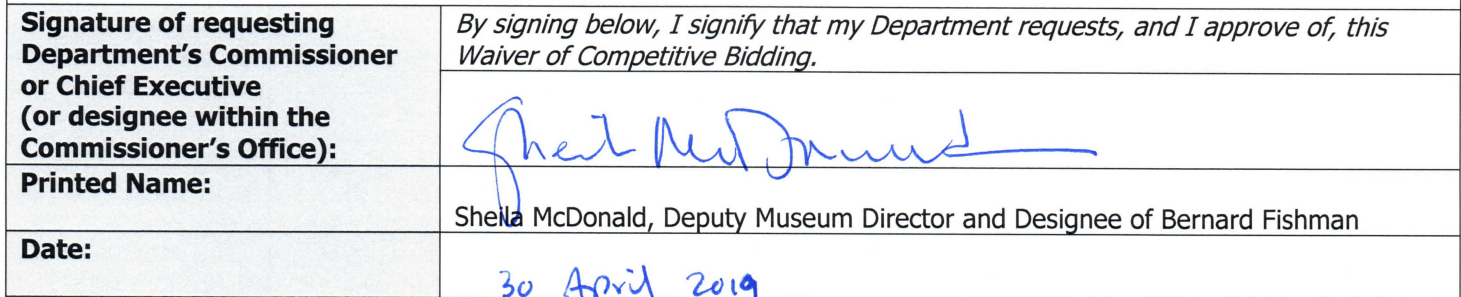 Signature of requesting
Department's Commissioner
or Chief Executive
(or designee within the
Commissioner's Office):
By signing below, I signify that my Department requests, and I approve of, this
Waiver of Competitive Bidding.
Sheila McDonald
Printed Name:
Sheila McDonald, Deputy Museum Director and Designee of Bernard Fishman
Date:
30 April 2019